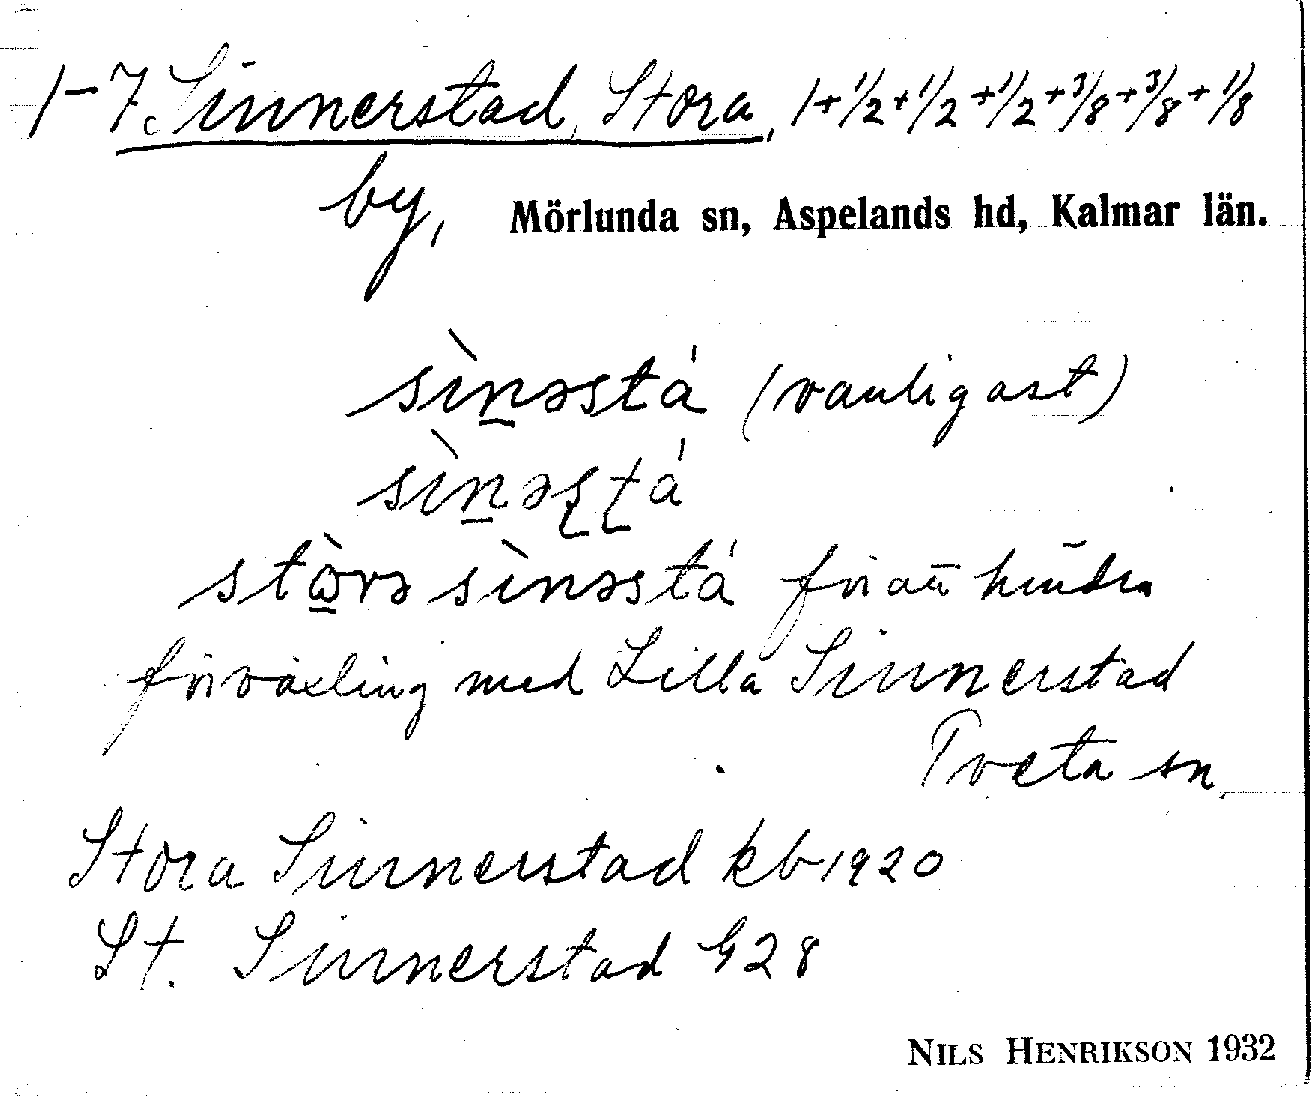 1-7 Sinnerstad, Stora, 1+1/2+1/2+1/2+3/8+3/8+1/8
by, Mörlunda sn, Aspelands hd, Kalmar län.
sìn̲əstá (vanligast)
sìn̲əʂʈá
stὼ̲rə sìnəstá för att hindra
förväxling med Lilla Sinnerstad
Tveta sn.
Stora Sinnerstad kb 1920
St. Sinnerstad G 28
NILS HENRIKSON 1932